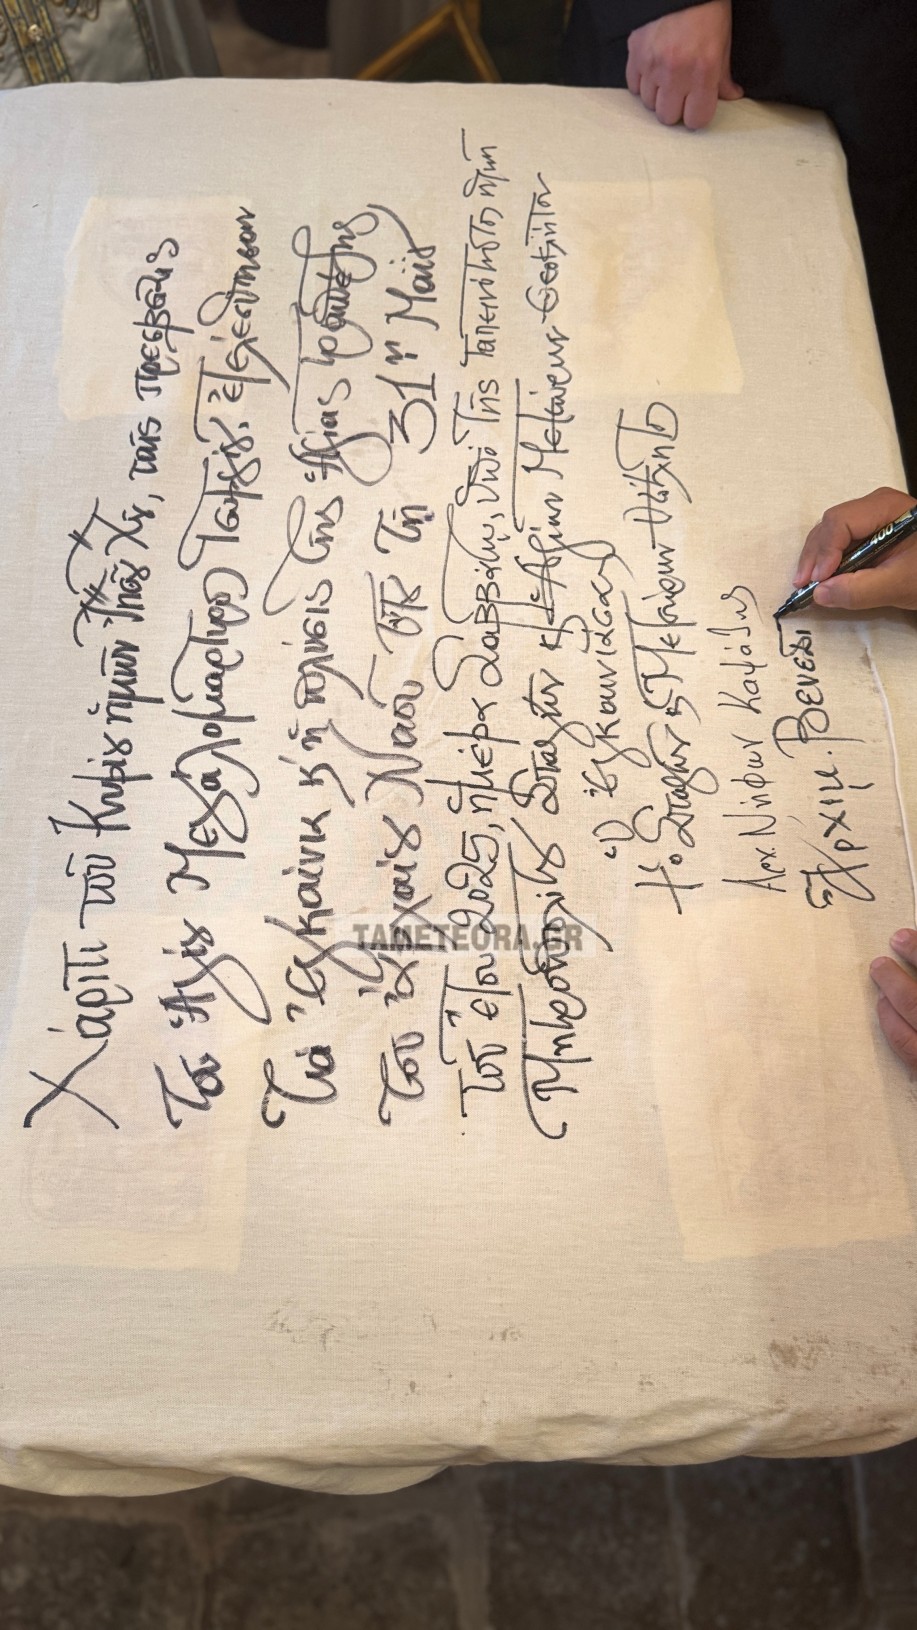 Χάριτι τοῦ Κυρίου ἡμῶν Ἰησοῦ Χῦ, ταῖς πρεσβείαις
Τοῦ Ἁγίου Μεγαλομάρτυρος Γεωργίου, ἐτελέσθησαν
Τὰ ἐγκαίνια κ' ἡ Ἁγίας Τραπέζης
Τοῦ Ναοῦ Τῇ 31ῃ Μαΐου
Τοῦ ἔτους 2025, ἡμέρᾳ Σαββάτῳ, ὑπὸ Τῆς Ταπεινότητος ἡμῶν
Μητροπολίτου Σταγῶν κ Ἁγίων Μετεώρων Θεοκλήτου
Ὁ ἐγκαινιάσας
† ὁ Σταγῶν κ Μετεώρων Θεόκλητος
Αρχ. Νήφων Καψάλης
Ἀρχιμ. Βενεδι
TAMETEORA.GR